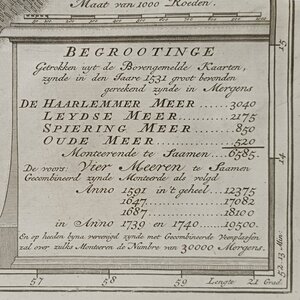 Maat van 1000 Roeden.
BEGROOTINGE
Getrokken uyt de Bovengemelde Kaarten,
zynde in den Jaare 1531 groot bevonden
gereekend zynde in Mergens
DE HAARLEMMER MEER ........ 3040
LEYDSE MEER ........ 2175
SPIERING MEER ........ 850
OUDE MEER ........ 520
Monteerende te Saamen 6585.
De voors: Vier Meeren te Saamen
Gecombineerd zynde Monteerde als volgd
Anno 1591 in't geheel 12375
1647. 17082
1687. 18100
in Anno 1739 en 1740 19500.
En op heeden byna vereenigd zynde met Gecombineerde
zal over zulks Monteeren de Numbre van 30000 Mergens.
57 58 59 Lengte 21 Grad.
15
14
13 Min.
52